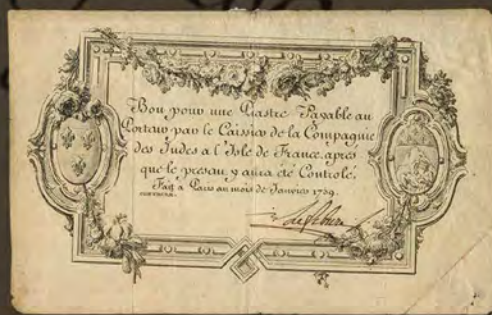 Bon pour une Piastre Payable au
Porteur par le Caissier de la Compagnie
des Indes a l'Isle de France, aprés
que le presant y aura été Controlé.
Fait à Paris au mois de Janvier 1759.